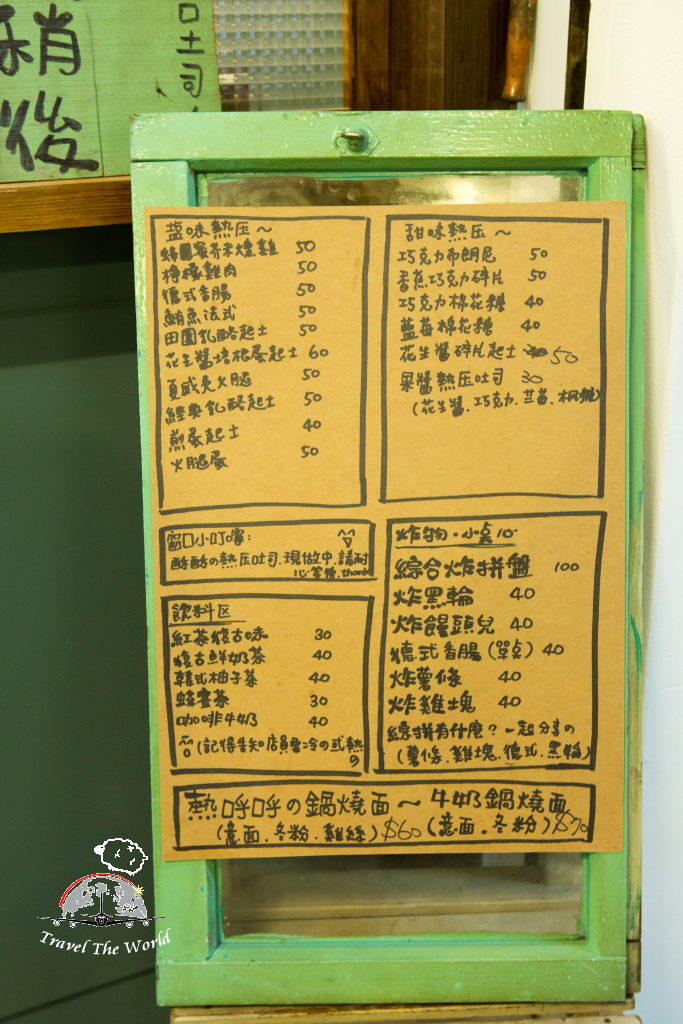 稍後
口土司
盐味熱压～
蜂蜜芥末燻雞 50
檸檬雞肉 50
德式香腸 50
鮪魚法式 50
田園乳酪起士 50
花生醬培根蛋起士 60
夏威夷火腿 50
經典乳酪起士 50
煎蛋起士 40
火腿蛋 50
甜味熱压～
巧克力布朗尼 50
香蕉巧克力碎片 50
巧克力棉花糖 40
藍莓棉花糖 40
花生醬碎片起士 50
果醬熱压吐司 30
(花生醬.巧克力.兰莓.楓糖)
窗口小叮嚀:
酥酥の熱压吐司.現做中.請耐
心等候.thank
飲料区
紅茶復古味 30
復古鮮奶茶 40
韓式柚子茶 40
蜂蜜茶 30
咖啡牛奶 40
(記得告知店員要冷の或熱
の
炸物.小桌心
綜合炸拼盤 100
炸黑輪 40
炸饅頭兒 40
德式香腸(單点) 40
炸薯條 40
炸雞塊 40
綜拼有什麼?一起分享の
(薯條.雞塊.德式.黑輪)
熱呼呼の鍋燒面～牛奶鍋燒面
(意面.冬粉.雞絲)$60(意面.冬粉)$70
Travel The World